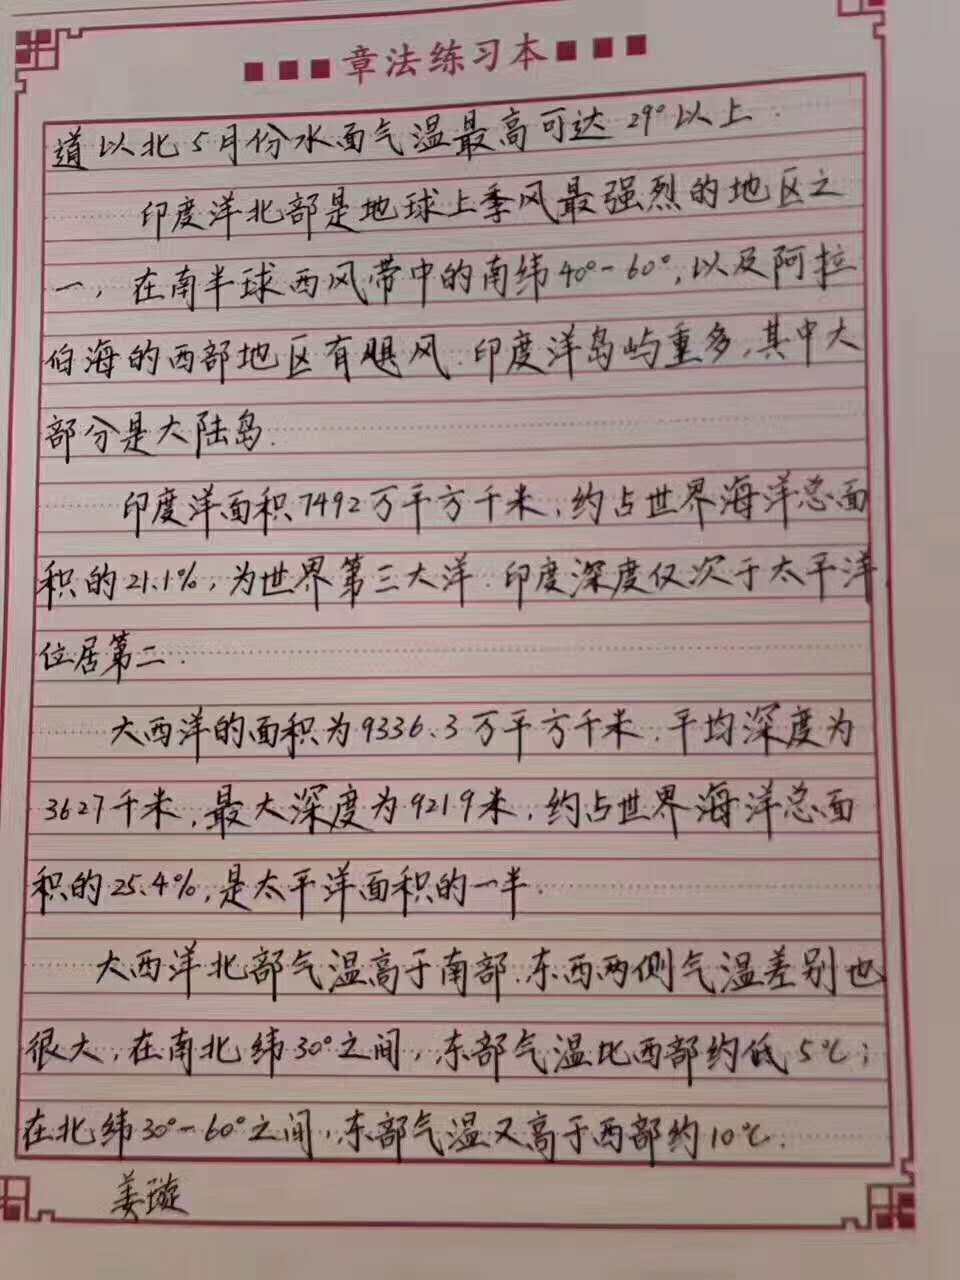 章法练习本
道以北5月份水面气温最高可达29°以上.
印度洋北部是地球上季风最强烈的地区之
一,在南半球西风带中的南纬40°-60°,以及阿拉
伯海的西部地区有飓风.印度洋岛屿重多,其中大
部分是大陆岛.
印度洋面积7492万平方千米,约占世界海洋总面
积的21.1%,为世界第三大洋.印度深度仅次于太平洋
位居第二.
大西洋的面积为9336.3万平方千米.平均深度为
3627千米,最大深度为9219米,约占世界海洋总面
积的25.4%,是太平洋面积的一半.
大西洋北部气温高于南部.东西两侧气温差别也
很大,在南北纬30°之间,东部气温比西部约低5℃;
在北纬30°-60°之间,东部气温又高于西部约10℃.
姜璇